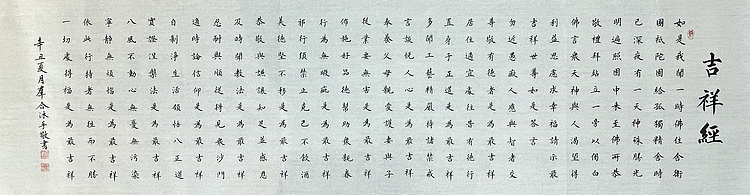 吉祥經
如是我聞一時佛住舍衛
國祇陀園給孤獨精舍時
已深夜有一天神殊勝光
明遍照園中來至佛所恭
敬禮拜站立一旁以偈白
佛言眾天神與人渴望得
利益思慮求幸福請示最
吉祥世尊如是答言
勿近愚痴人應與智者交
尊敬有德者是為最吉祥
居住適宜處往昔有德行
置身于正道是為最吉祥
多聞工藝精嚴持諸禁戒
言談悅人心是為最吉祥
奉養父母親愛護妻與子
從業要無害是為最吉祥
佈施好品德幫助眾親眷
行為無瑕疵是為最吉祥
邪行須禁止克己不飲酒
美德堅不移是為最吉祥
恭敬與謙讓知足並感恩
及時聞教法是為最吉祥
忍耐與順從得見眾沙門
適時論信仰是為最吉祥
自制淨生活領悟八正道
實證涅槃法是為最吉祥
八風不動心無憂無污染
寧靜無煩惱是為最吉祥
依此行持者無往而不勝
一切處得福是為最吉祥
辛丑夏月合沐手敬書